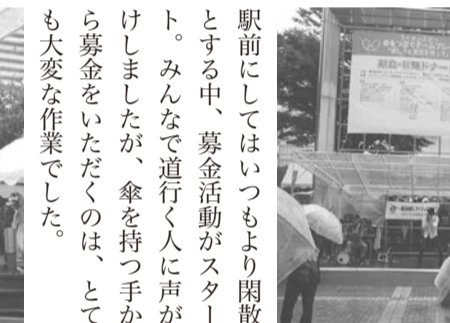 駅前にしてはいつもより閑散
とする中、募金活動がスター
ト。みんなで道行く人に声が
けしましたが、傘を持つ手か
ら募金をいただくのは、とて
も大変な作業でした。